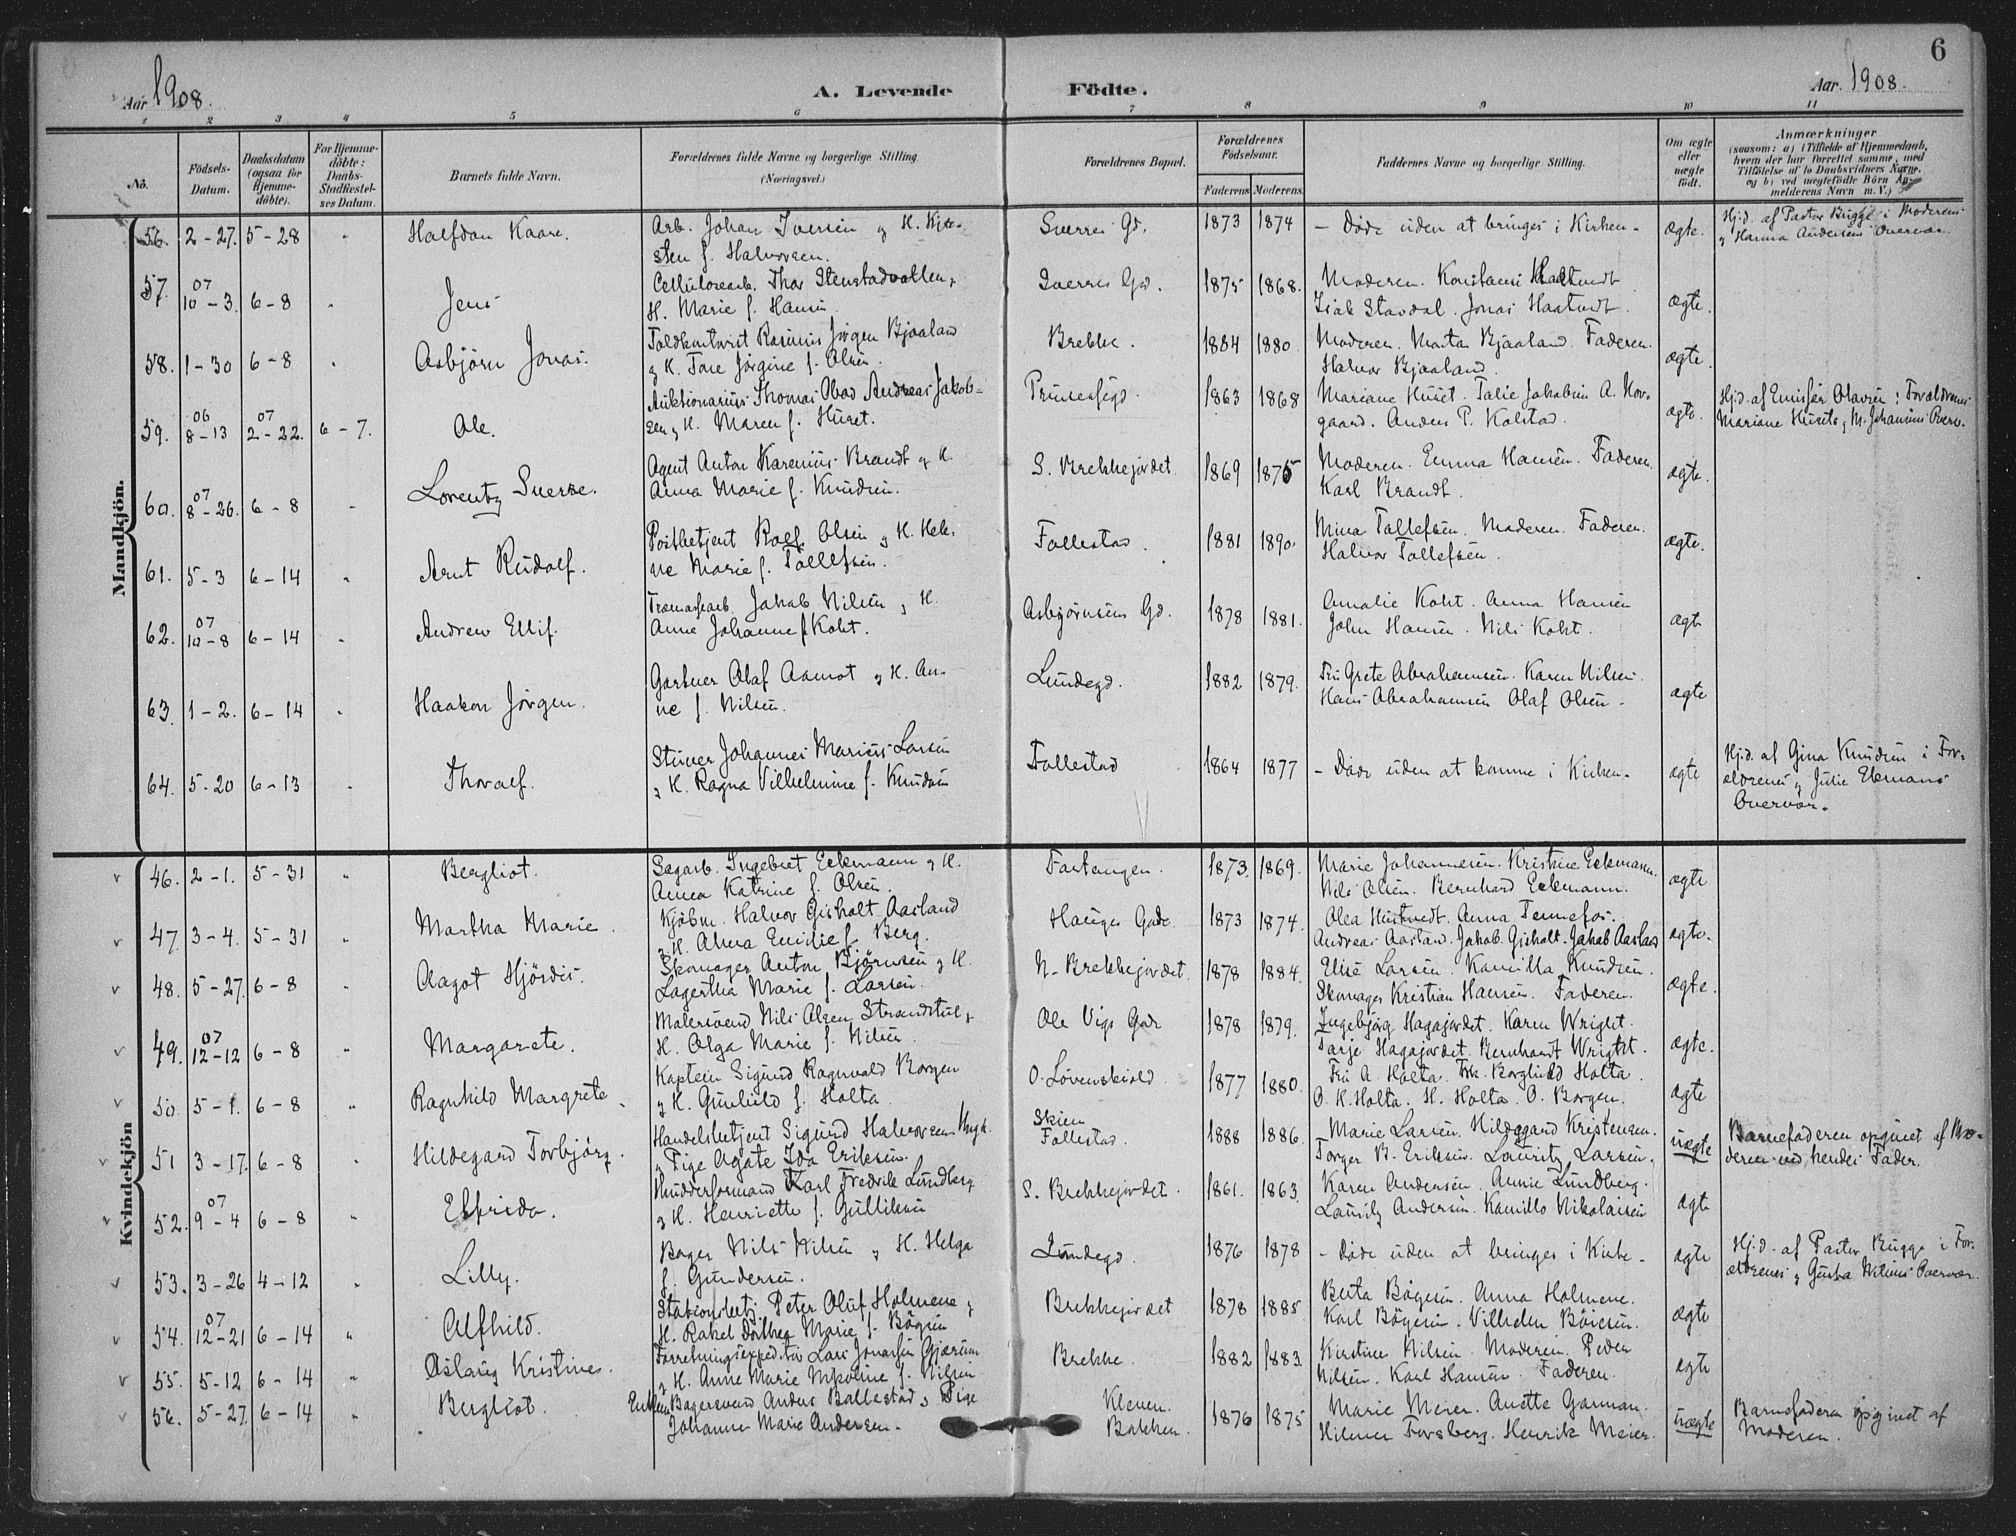 6
Aar 1908.
A. Levende Födte.
Aar 1908.
1 2 3 4 5 6 7 8 9 10 11
No.
Födsels-Datum.
Daabsdatum (ogsaa for Hjemme-döbte).
For Hjemme-döbte: Daabs-Stadfæstel-ses Datum.
Barnets fulde Navn.
Forældrenes fulde Navne og borgerlige Stilling. (Næringsvei.)
Forældrenes Bopæl.
Forældrenes Födselsaar. Faderens Moderens
Faddernes Navne og borgerlige Stilling.
Om ægte eller uægte födt.
Anmærkninger (saasom: a) i Tilfælde af Hjemmedaab, hvem der har forrettet samme, med Tilföielse af to Daabsvidners Navne, og b) ved uægtefödte Börn An-melderens Navn m. V.)
Mandkjön.
56. 2-27. 5-28 " Halfdan Kaare. Arb. Johan Iversen og H. Kjer-
sten f. Halvorsen. Sverres Gd. 1873 1874 - Døde uden at bringes i Kirken - ægte. Hjd. af Pastor Bugge i Moderens
og Hanna Andersens Overvær.
57. 07 10-3. 6-8 " Jens Cellulosearb. Thor Stenstadvollen og
H. Marie f. Hansen. Sverres Gd. 1875 1868. Moderen. Konstanse Haatvedt
Stavdal. Jonas Haatvedt. ægte.
58. 1-30 6-8 " Asbjörn Jonas. Toldkontorist Rasmus Jörgen Bjaaland
og H. Tone Jörgine f. Olsen. Brekke. 1884 1880 Moderen. Marta Bjaaland. Faderen.
Halvor Bjaaland. ægte.
59. 06 8-13 07 2-22. 6-7. Ole. Auktionarius Thomas Obad Andreas Jakob-
sen og H. Maren f. Huset. 1863 1868 Mariane Huset. Talie Jakobsen A. Hov-
gaard. Anders P. Kolstad. ægte. Hjd. af Emissær Olavsen i Forældrenes
Mariane Husets og M. Johansens Overv.
60. 07 8-26. 6-8 " Lorentz Sverre. Agent Anton Karenius Brandt og H.
Anna Marie f. Knudsen. S. Brekkejordet 1869 1875 Moderen. Emma Hansen. Faderen.
Karl Brandt. ægte.
61. 5-3 6-14 " Arnt Rudolf. Postbetjent Rolf Olsen og H. Hele-
ne Marie f. Tollefsen. Follestad. 1881 1890. Mina Tollefsen. Moderen. Faderen.
Halvor Tollefsen. ægte.
62. 07 10-8 6-14 " Andrew Ellif. Træmassearb. Jakob Nilsen og H.
Anne Johanne f. Koht. Asbjörnsens Gd. 1878 1881. Amalie Koht. Anna Hansen
John Hansen. Nils Koht. ægte
63. 1-2. 6-14 " Haakon Jörgen. Gartner Olaf Aamot og H. An-
ne f. Nilsen. Lundegd. 1882 1879. Fru Grete Abrahamsen. Karen Nilsen.
Hans Abrahamsen Olaf Olsen - ægte
64. 5-20 6-13 " Thoralf. Stuver Johannes Marius Larsen
og H. Ragna Vilhelmine f. Knudsen Follestad 1864 1877 - Døde uden at komme i Kirken - ægte Hjd. af Gina Knudsen i For-
ældrenes og Julie Ekmans
Overvær.
Kvindekjön
46. 2-1. 5-31 " Bergliot. Sagarb. Ingebret Eckmann og H.
Anna Katrine f. Olsen. Fartangen. 1873. 1869. Marie Johannesen. Kristine Eckmann.
Nils Olsen. Bernhard Eckmann. ægte
47. 3-4. 5-31 " Martha Marie. Kjøbm. Halvor Gisholt Aasland
og H. Alma Emilie f. Berg. Hauges Gade 1873 1874. Olea Hustvedt. Anna Tennefos.
Andreas Aasland. Jakob Gisholt. Jakob Aasland ægte.
48. 5-27. 6-8 " Aagot Hjördis. Skomager Anton Björnsen og H.
Lagertha Marie f. Larsen. N. Brekkejordet. 1878 1884. Elise Larsen. Kamilla Knudsen.
Skomager Kristian Hansen. Faderen. ægte.
49. 07 12-12 6-8 " Margarete. Malersvend Nils Olsen Strandstul og
H. Olga Marie f. Nilsen. Ole Vigs Gade 1878 1879. Ingebjörg Hagajordet. Karen Wright.
Tarje Hagajordet. Bernhardt Wright. ægte.
50. 5-1. 6-8 " Ragnhild Margrete. Kaptein Sigurd Ragnvald Borgen
og H. Gunhild f. Holta. O. Lövenskiold. 1877 1880. Fru A. Holta. Frk. Borghild Holta.
O. K. Holta. H. Holta. O. Borgen. ægte
51 3-17. 6-8 " Hildegard Torbjörg. Handelsbetjent Sigurd Halvorsen Ungk.
og Pige Agate Ida Eriksen. Skien
Follestad. 1888 1886. Marie Larsen. Hildegard Kristensen.
Torger B. Eriksen. Lauritz Larsen. uægte Barnefaderen opgivet af Mo-
deren ved hendes Fader.
52. 07 9-4 6-8 " Elfrida. Karl Fredrik Lundberg
og H. Henriette f. Gulliksen S. Brekkejordet. 1861. 1863. Karen Andersen. Annie Lundberg.
Lauritz Andersen. Kamillo Nikolaisen ægte
53. 3-26 4-12 " Lilly. Bager Nils Nilsen og H. Helga
f. Gundersen. Lundegd 1876 1878 - Døde uden at bringes i Kirke - ægte Hjd. af Pastor Bugge i For-
ældrenes og Overvær.
54. 07 12-21 6-14 " Alfhild. Stationsbetj. Peter Oluf Holmene og
H. Rakel Dorthea Marie f. Bögsen Brekkejordet 1878 1885. Berta Bögsen. Anna Holmene.
Karl Bögsen. Vilhelm Böiesen. ægte
55. 5-12 6-14 " Aslaug Kristine. Forretningsexpeditør Lars Jonassen Gjærum
og H. Anne Marie Nikoline f. Nilsen Brekke. 1882 1883. Kirstine Nilsen. Moderen. Peder
Nilsen. Karl Hansen. Faderen. ægte
56. 5-27. 6-14 " Bergliot. Enkem. Bagersvend Anders Ballestad og Pige
Johanne Marie Andersen. Kleven.
Bakken. 1876 1875 Marie Meier. Anette Garman.
Hilmer Forsberg. Henrik Meier. uægte Barnefaderen opgivet af
Moderen.